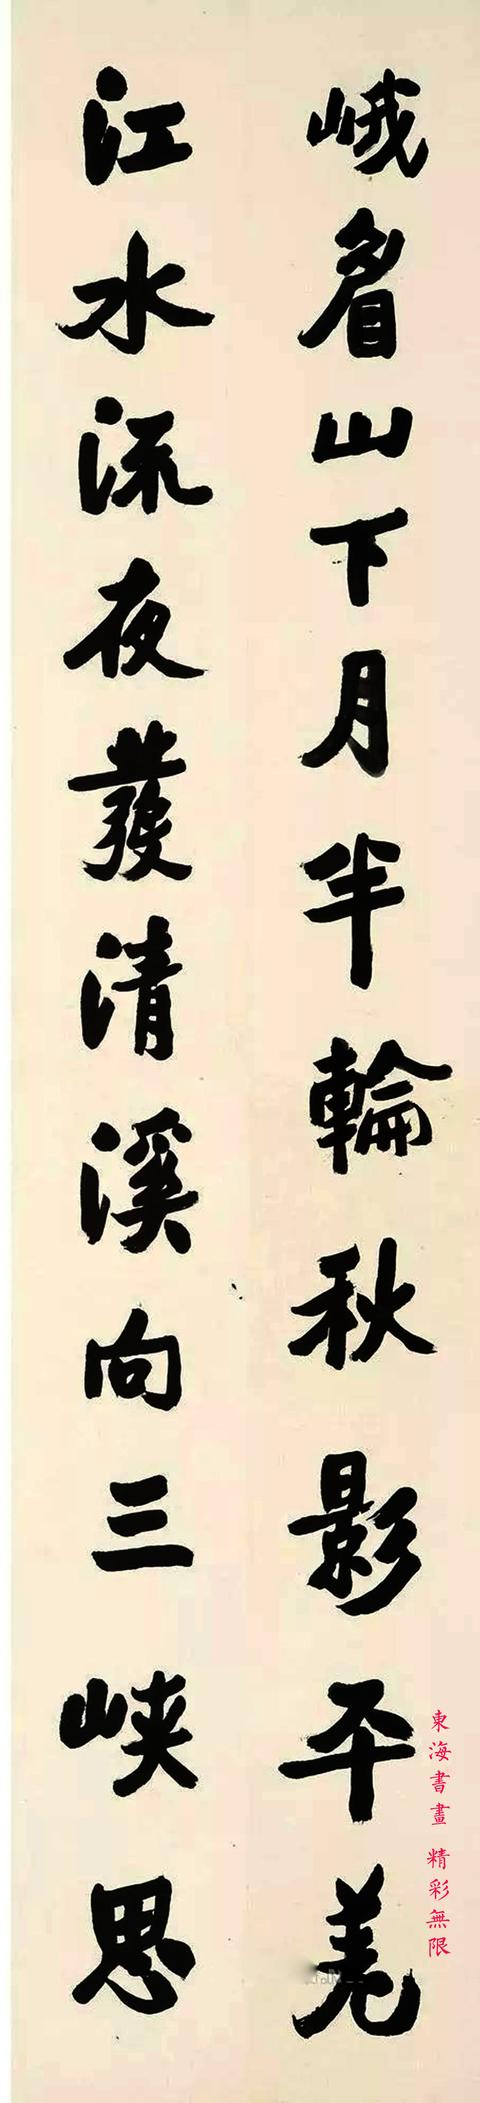 峨眉山下月半輪秋影平羌
江水流夜發清溪向三峽思
東海書畫 精彩無限